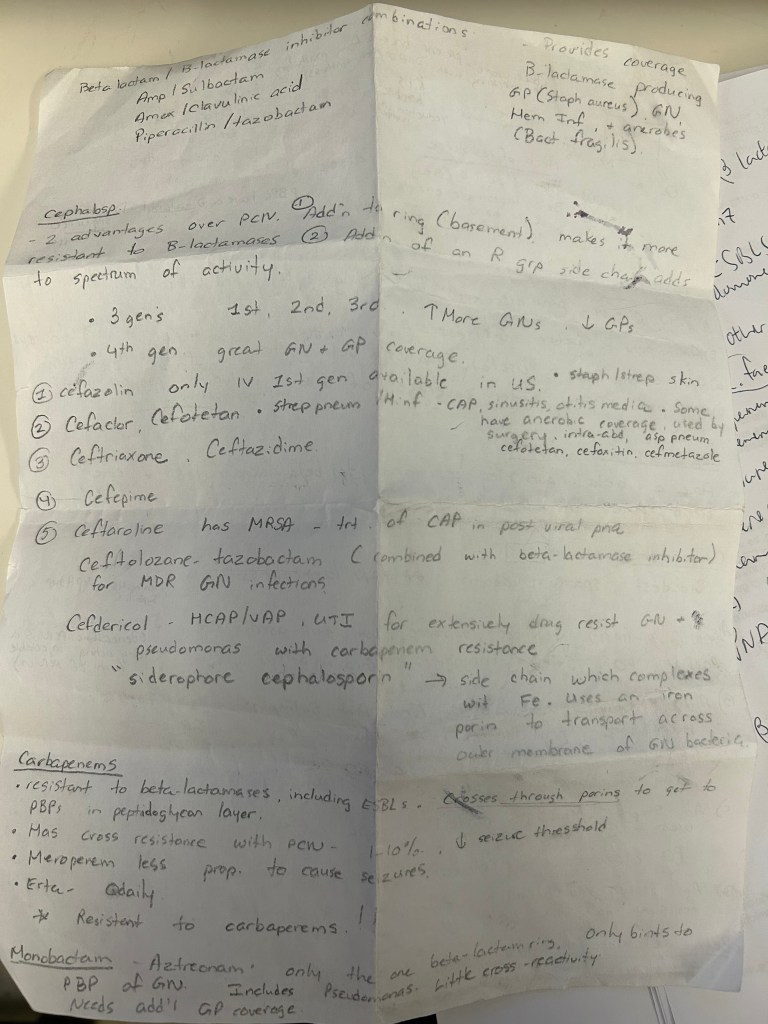 Beta lactam / B-lactamase inhibitor combinations. - Provides coverage
Amp / Sulbactam
Amox / Clavulinic acid
Piperacillin / tazobactam
B-lactamase producing
GP (Staph aureus), GN,
Hem Inf, + anerobes
(Bact fragilis).
Cephalosp.
- 2 advantages over PCN. ① Add'n to ring (basement) makes it more
resistant to B-lactamases ② Add'n of an R grp side chain adds
to spectrum of activity.
• 3 gen's 1st, 2nd, 3rd. ↑ More GNs ↓ GPs
• 4th gen great GN + GP coverage.
① cefazolin only IV 1st gen available in US. • staph/strep skin
② Cefaclor, Cefotetan • strep pneum / H.inf - CAP, sinusitis, otitis media • Some
have anerobic coverage, used by
surgery. intra-abd, asp pneum
cefotetan, cefoxitin, cefmetazole
③ Ceftriaxone, Ceftazidime
④ Cefepime
⑤ Ceftaroline has MRSA - trt. of CAP in post viral pna
Ceftolozane-tazobactam (combined with beta-lactamase inhibitor)
for MDR GN infections
Cefdericol - HCAP/VAP, UTI for extensively drug resist GN +
pseudomonas with carbapenem resistance
"siderophore cephalosporin" → side chain which complexes
wit Fe. Uses an iron
porin to transport across
outer membrane of GN bacteria.
Carbapenems
• resistant to beta-lactamases, including ESBLs. Crosses through porins to get to
PBPs in peptidoglycan layer.
• Has cross resistance with PCN - 1-10%. ↓ seizure threshold
• Meroperem less prop. to cause seizures.
• Erta- Qdaily
* Resistent to carbaperems. !!
Monobactam - Aztreonam. only the one beta-lactam ring. only binds to
PBP of GN. Includes Pseudomonas. Little cross-reactivity.
Needs add'l GP coverage
B lact
other